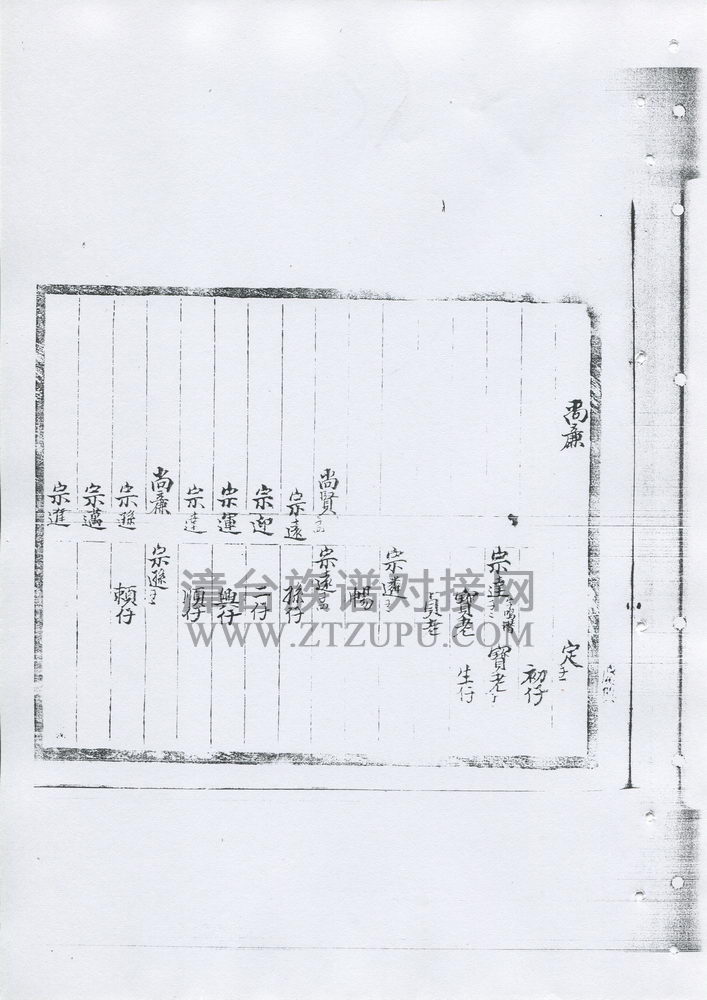 尚廉
定
初仔
宗達
寶老
寶老
生仔
宗
暢
尚賢
宗遠
宗遠
孫仔
宗迎
二仔
宗運
興仔
宗達
順仔
尚廉
宗遜
宗遜
賴仔
宗邁
宗進
清台族谱对接网
WWW.ZTZUPU.COM